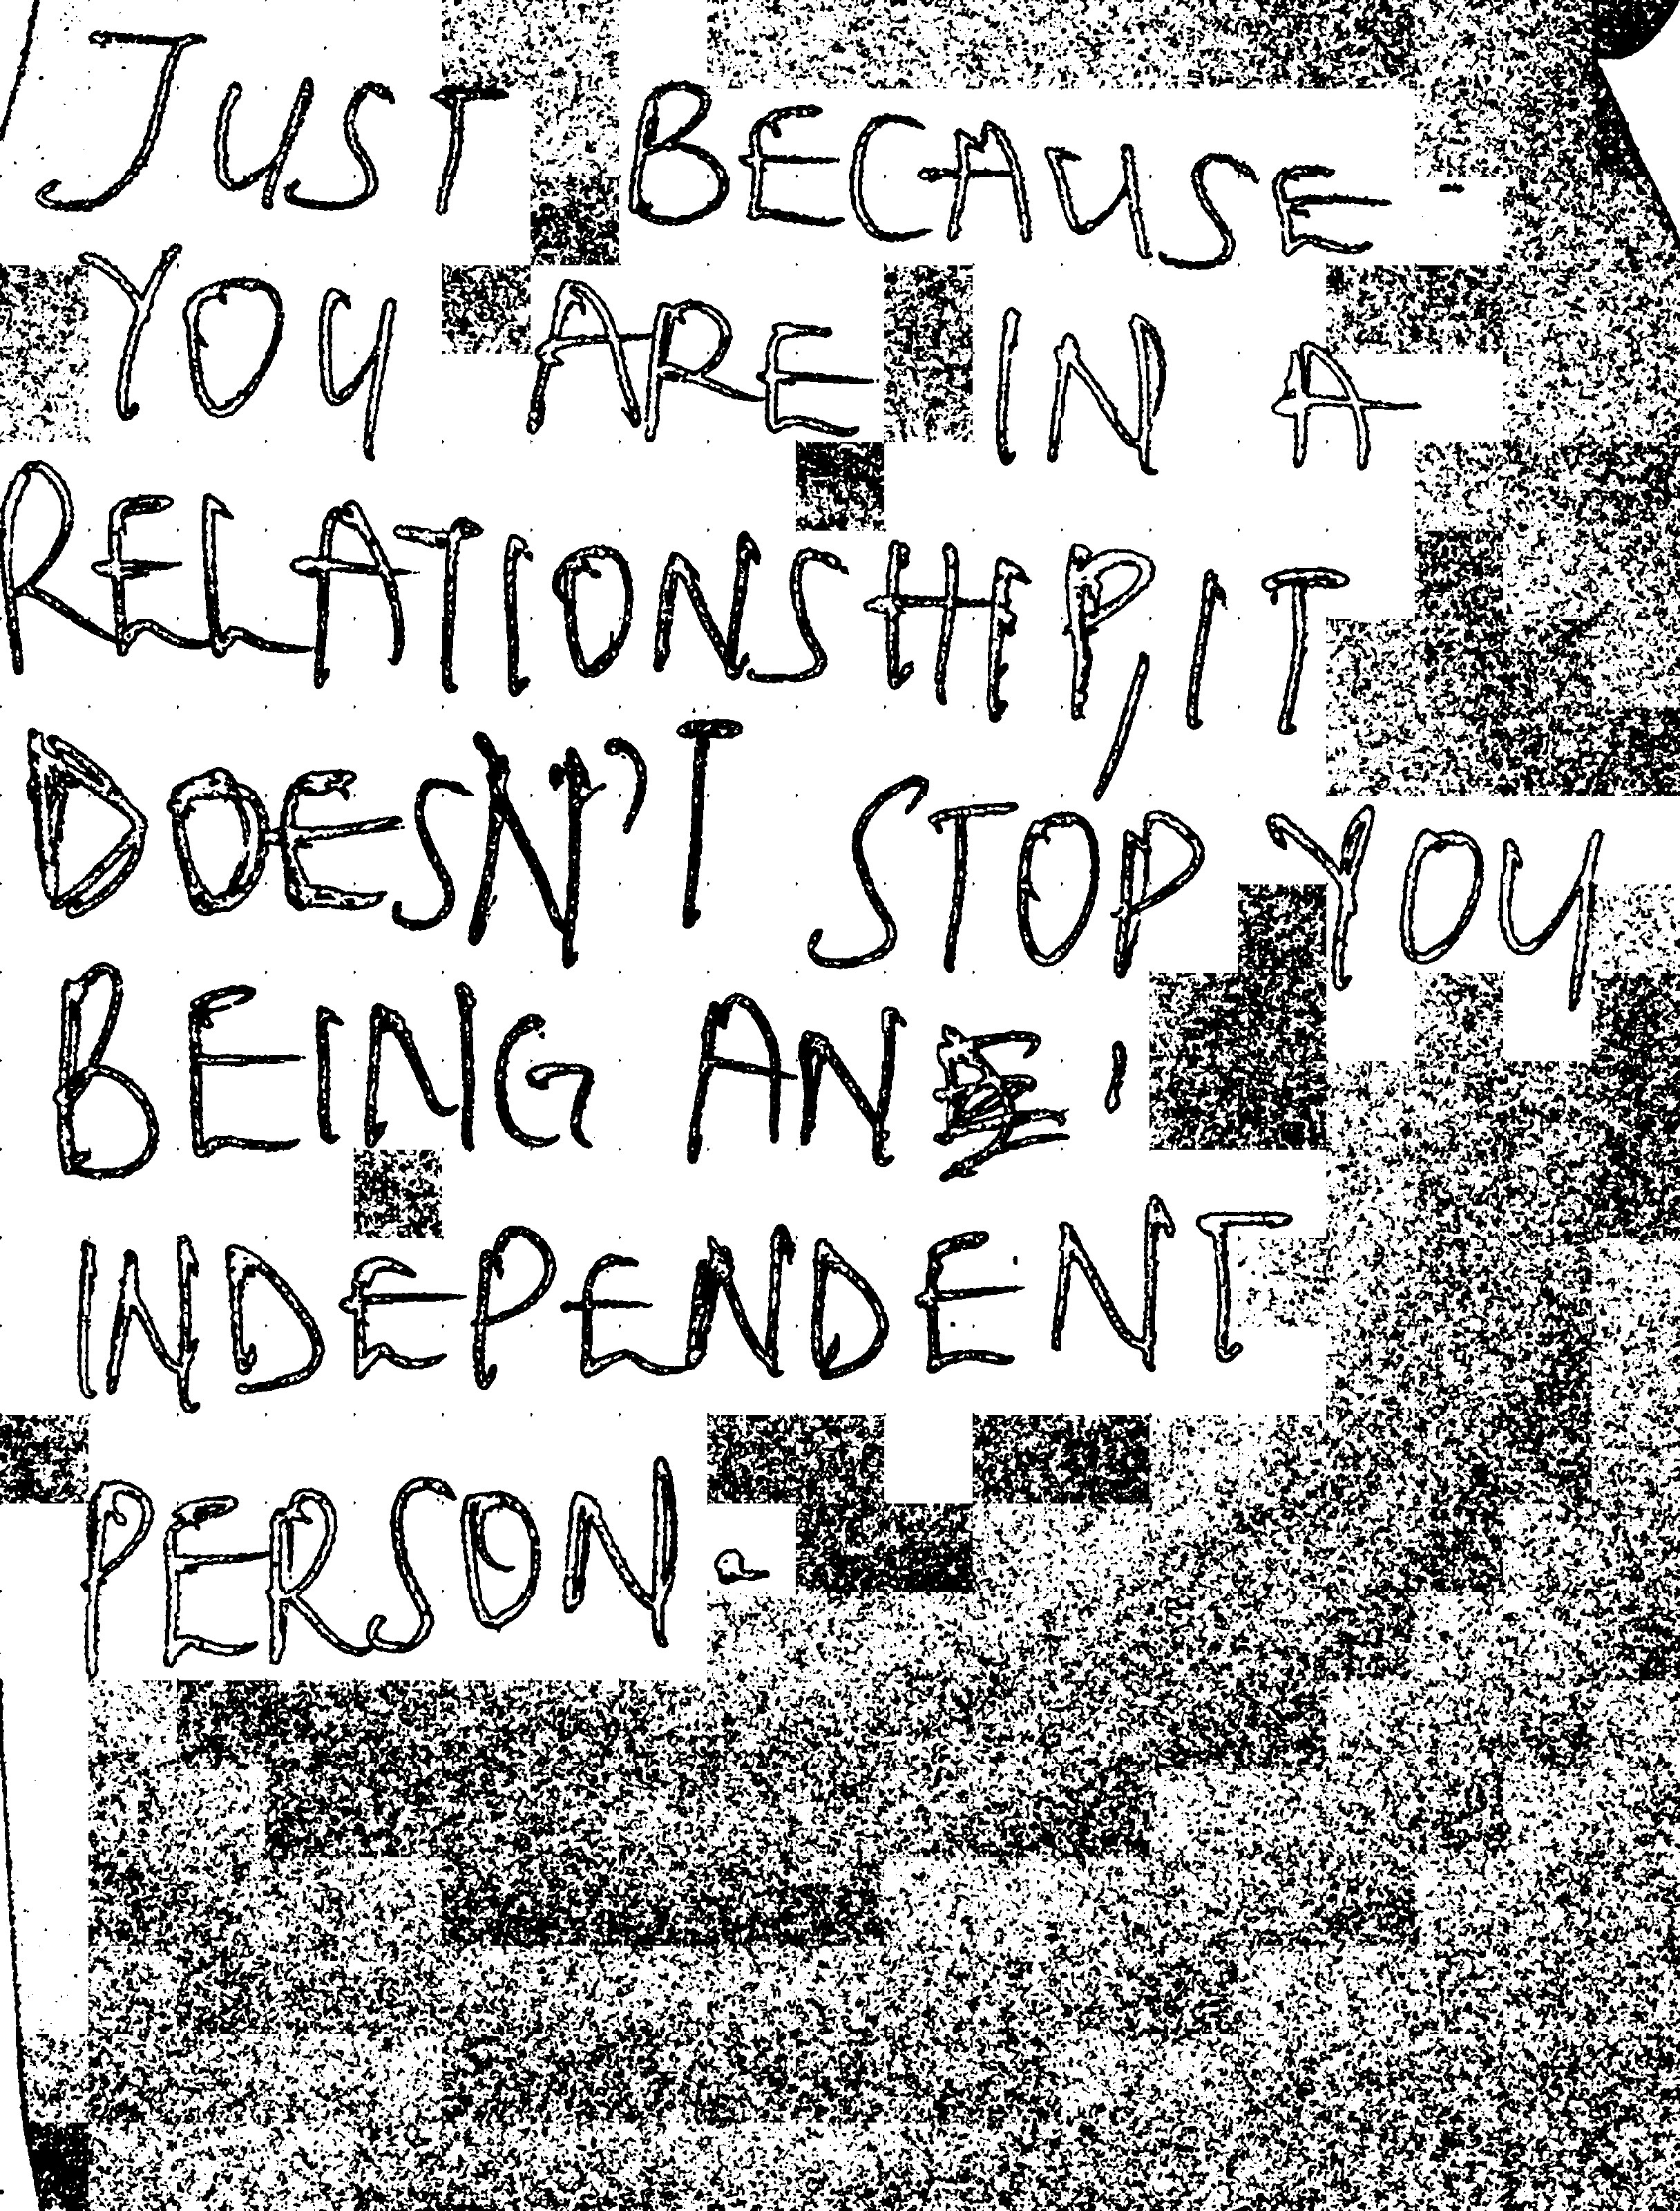 JUST BECAUSE
YOU ARE IN A
RELATIONSHIP, IT
DOESN'T STOP YOU
BEING AN
INDEPENDENT
PERSON.